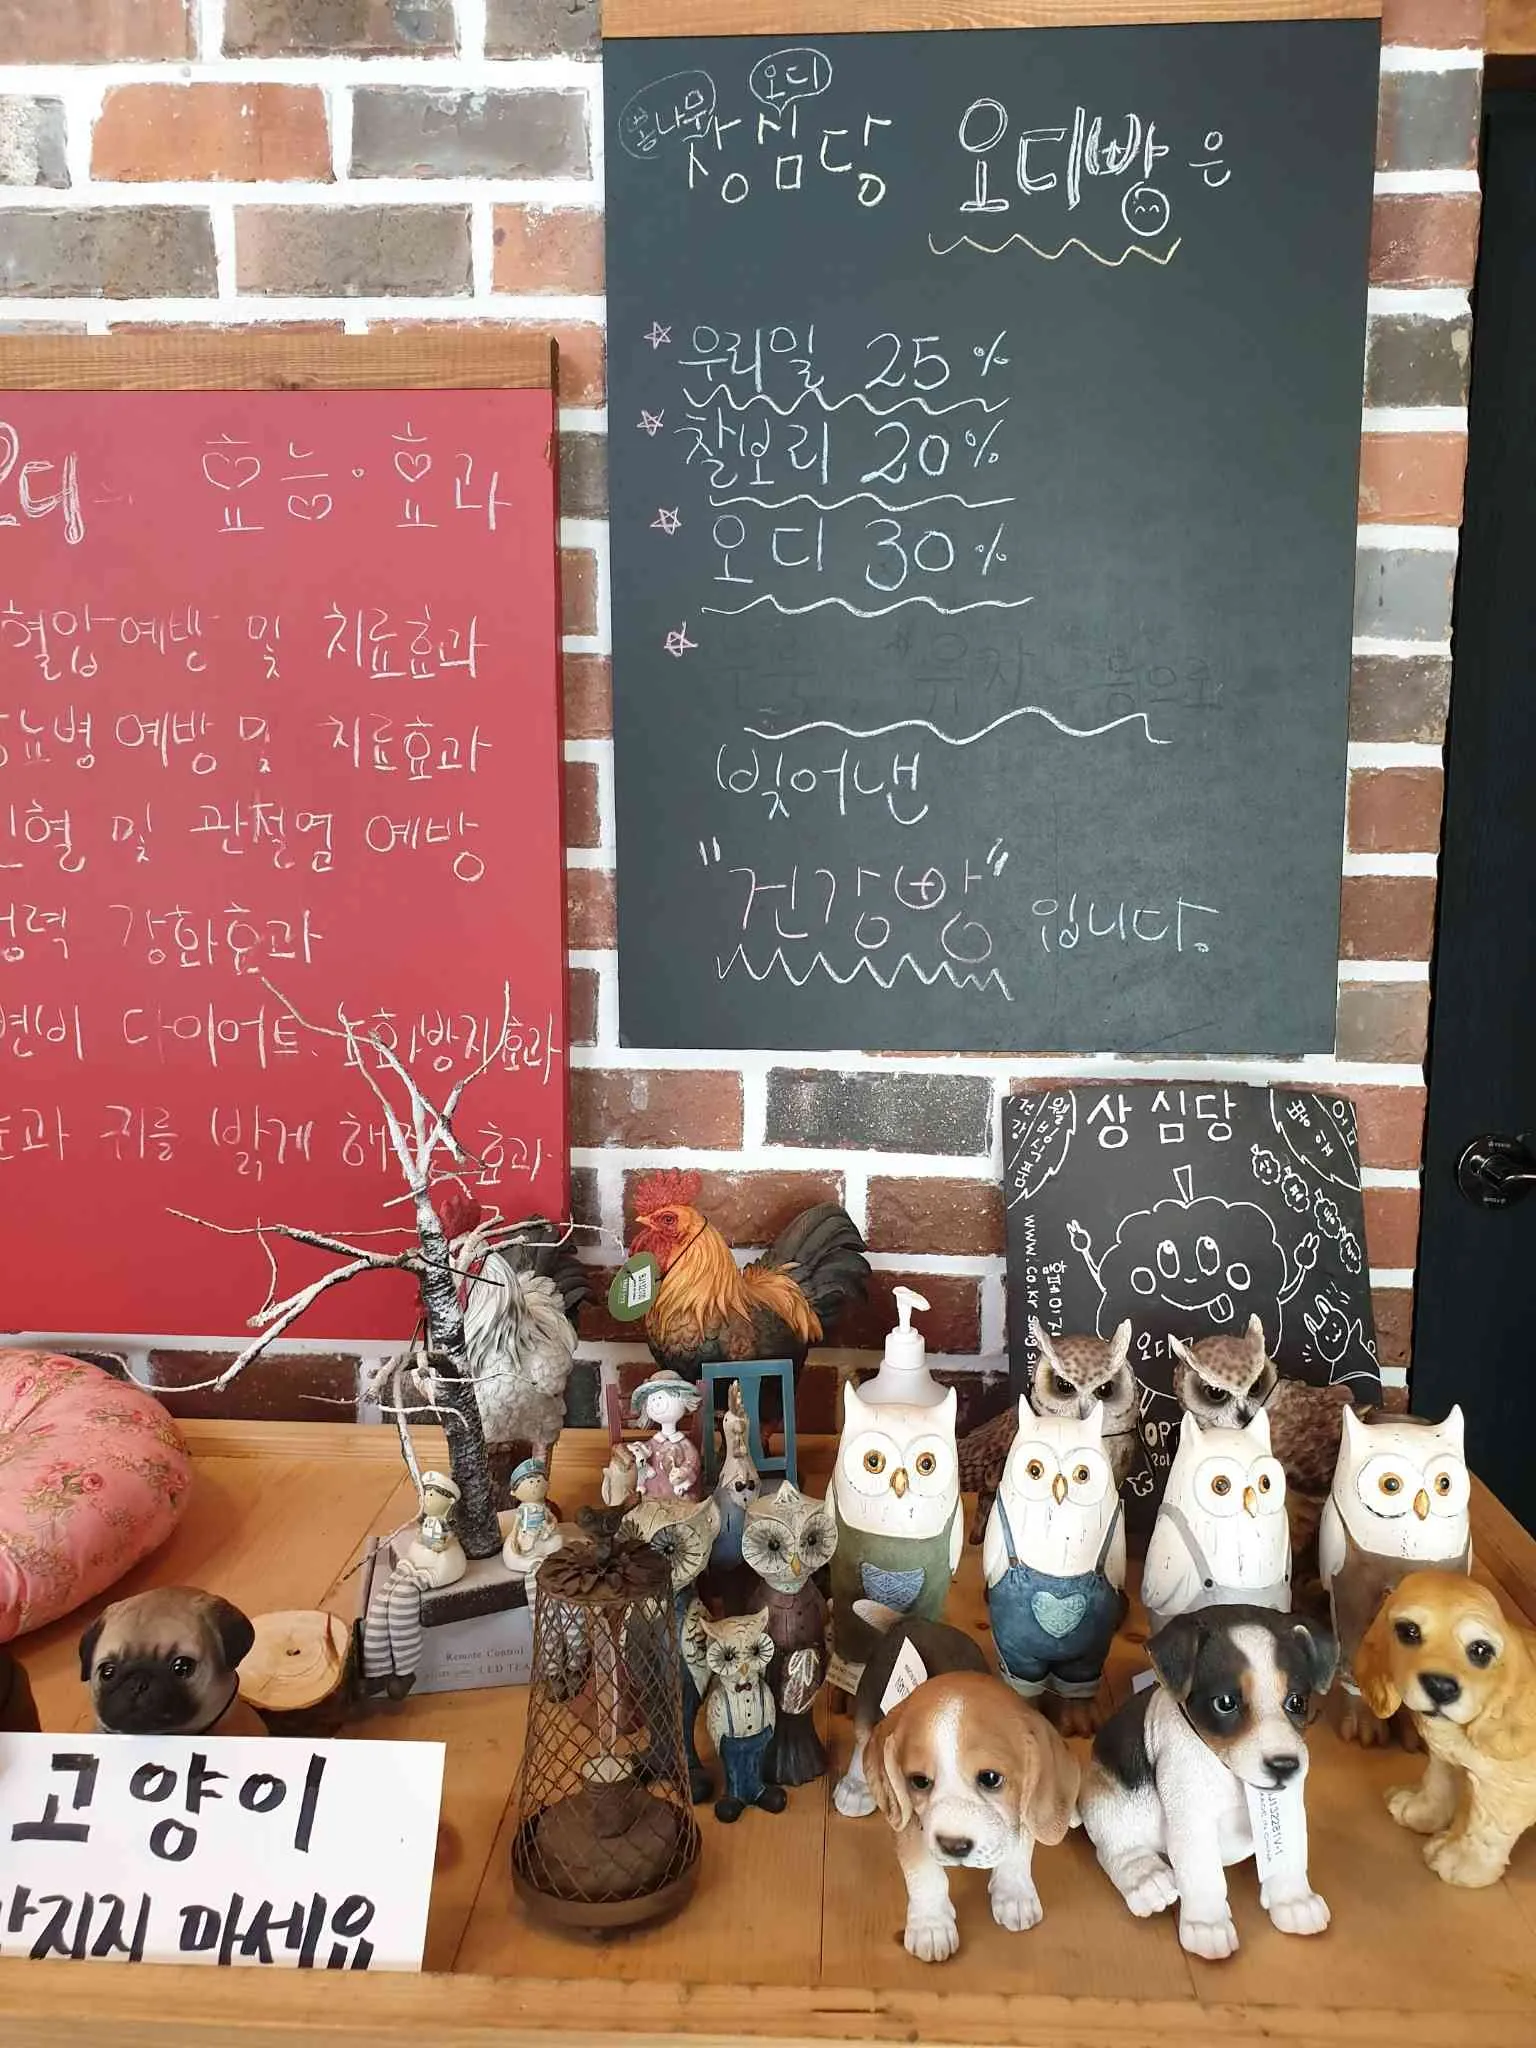 뽕나무
오디
상심당
오디빵은
우리밀 25%
찰보리 20%
오디 30%
"유자
빚어낸
"건강빵" 입니다.
오디의 효능·효과
혈압예방 및 치료효과
당뇨병 예방 및 치료효과
빈혈 및 관절염 예방
정력 강화효과
변비 다이어트. 노화방지효과
효과 귀를 밝게 해주는 효과
건강
상심당
오디
홈페이지
www.co.kr
오디
Remote Control
LED TEA
고양이
만지지 마세요